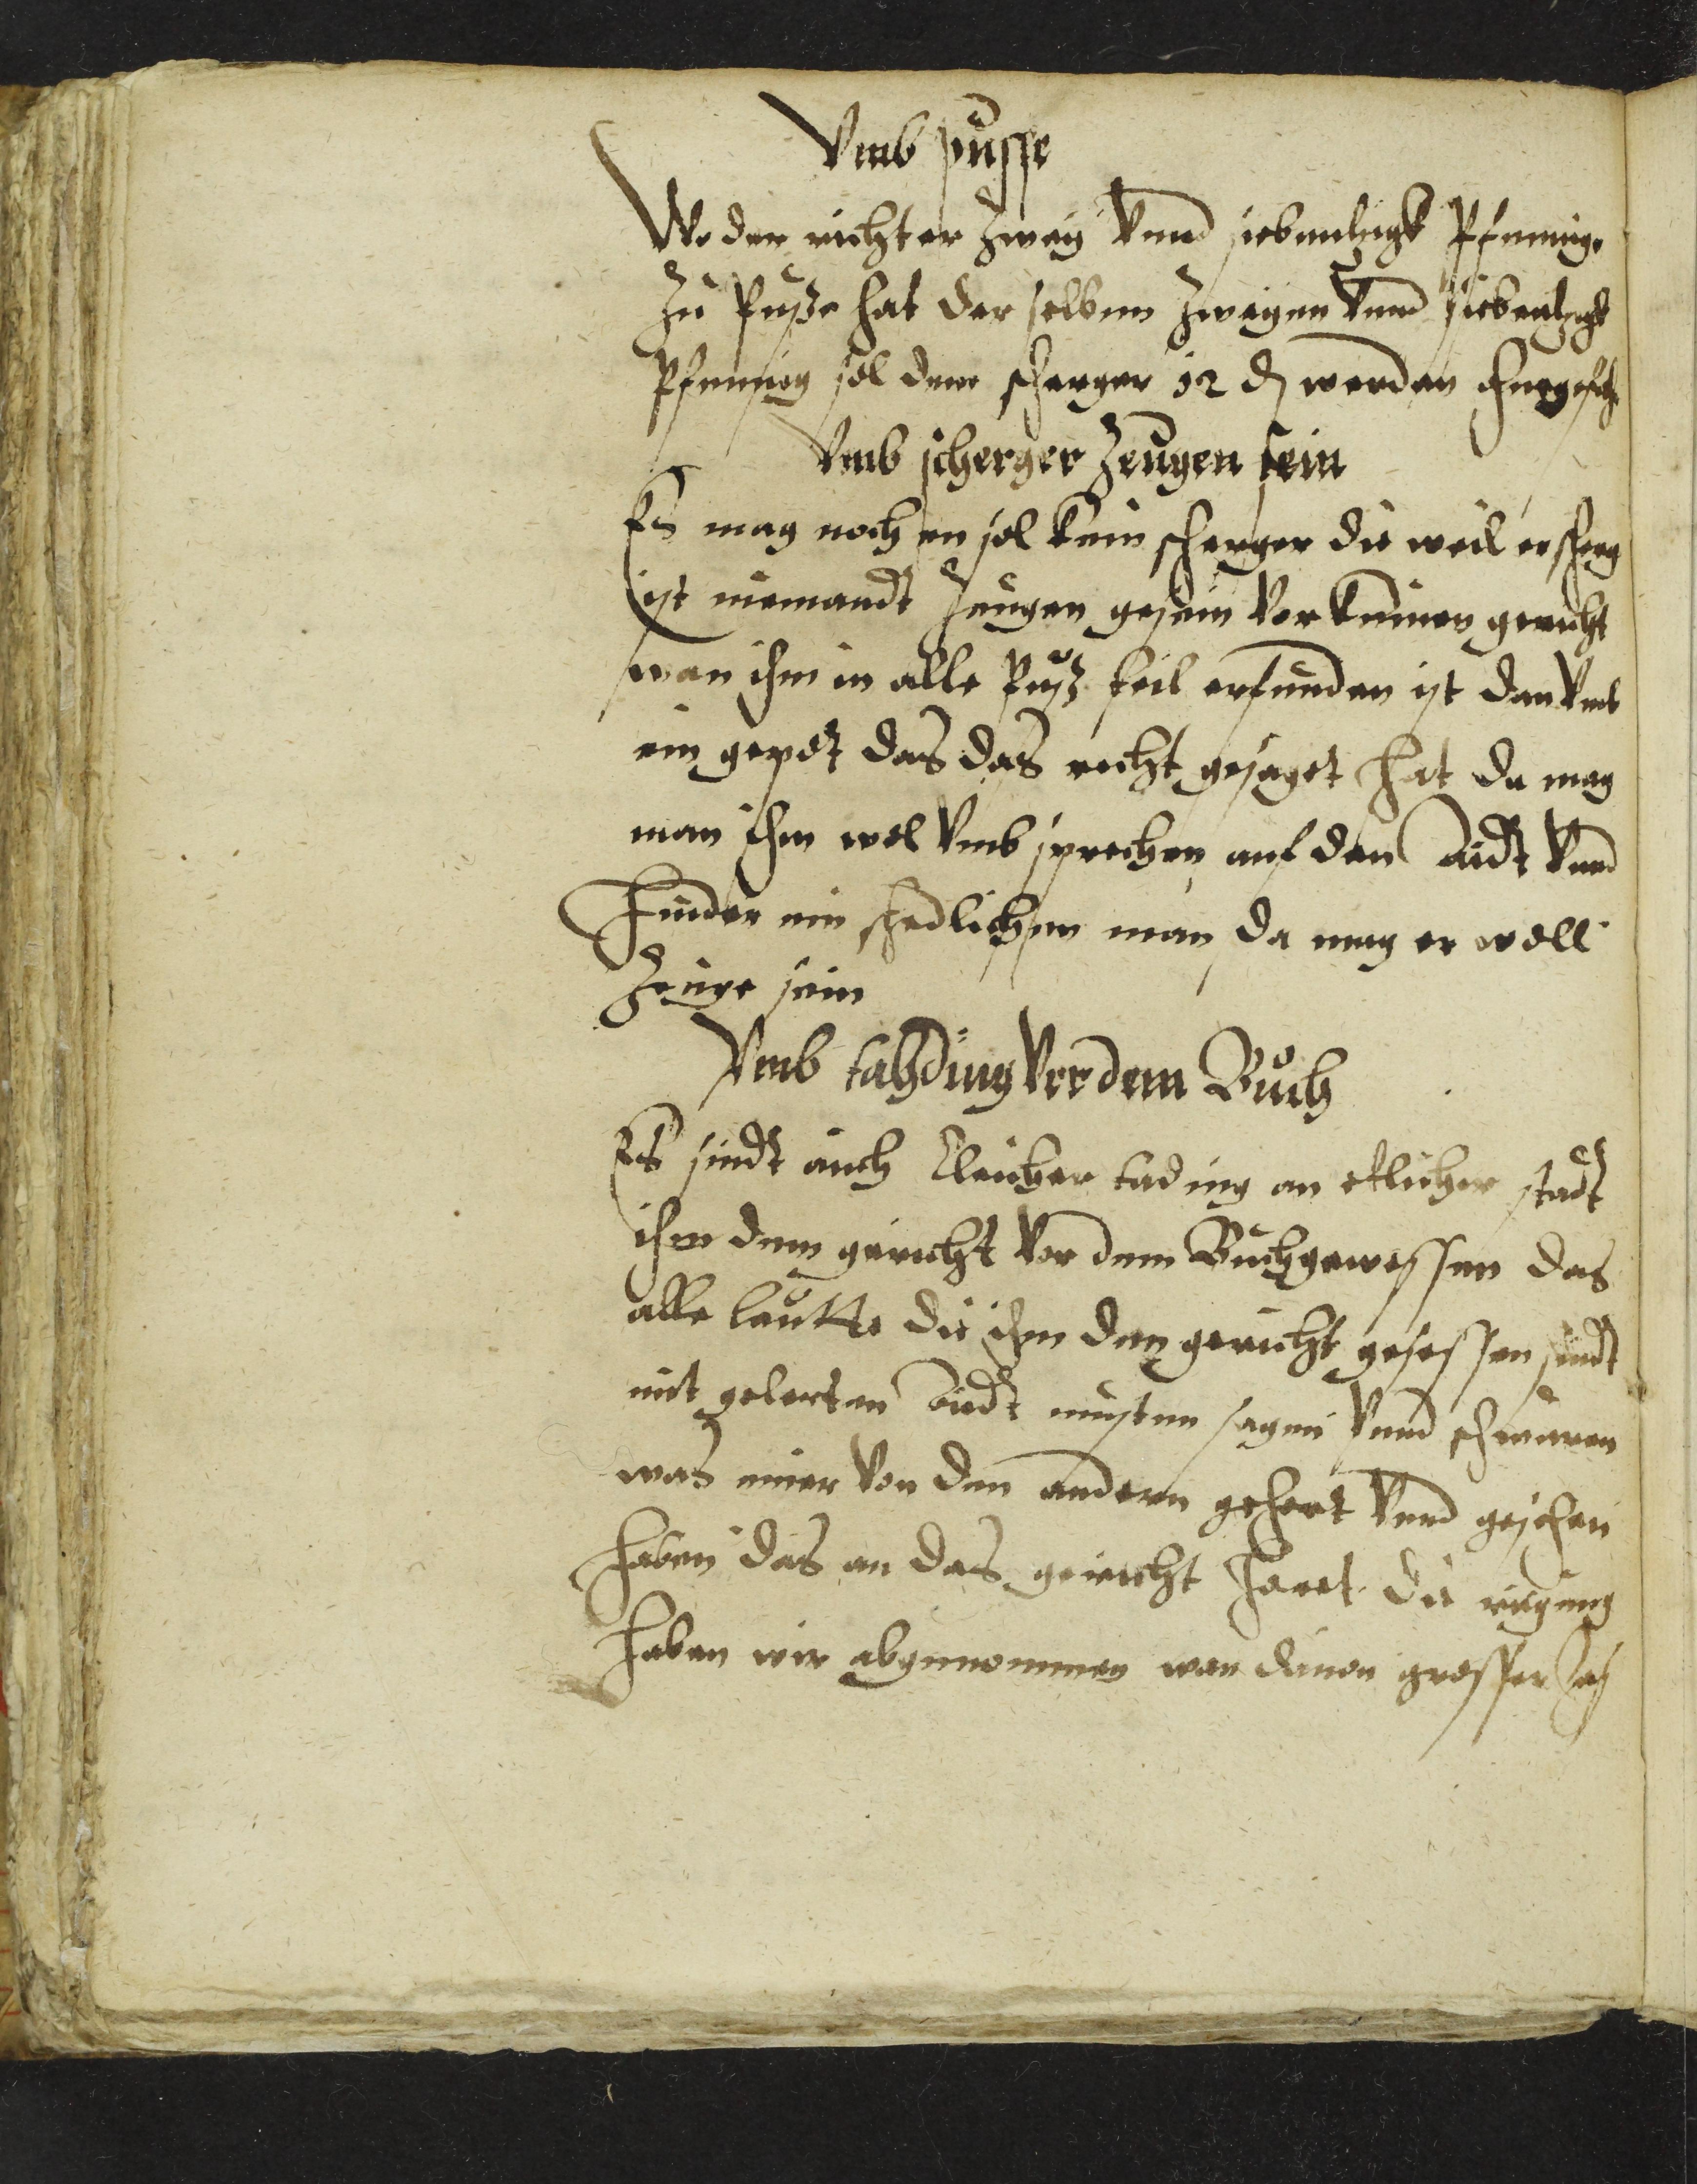 Vmb pusse
Wo der richter zwey vnnd siebentzigk Pfennige
zu Pusse hat der selben zweyen vnnd siebentzigk
Pfennig sol dem scherger 12 d werden
Vmb scherger zeugen sein
Es mag noch en sol kein scherger die weil er scherg
ist niemandt zeugen gesein vor keinen gericht
wan ihm in alle Puss teil erfunden ist dan vmb
ein gepot das das recht gesaget hat da mag
man ihm wol vmb sprechen auf den Aidt vnnd
Findet ein schedlichen man da mag er woll
Zeuge sein
Vmb tahding vor dem Buch
Es sindt auch tading an etlicher stadt
ihm dem gericht vor dem Buch gewessen das
alle leutte die ihm dem gericht gesessen sindt
mit gelerten Aidt musten sagen vnnd schweren
was einer von den andern gehort vnnd gesehen
haben das an das gericht horet die rugung
haben wir abgenommen wan dauon grosser